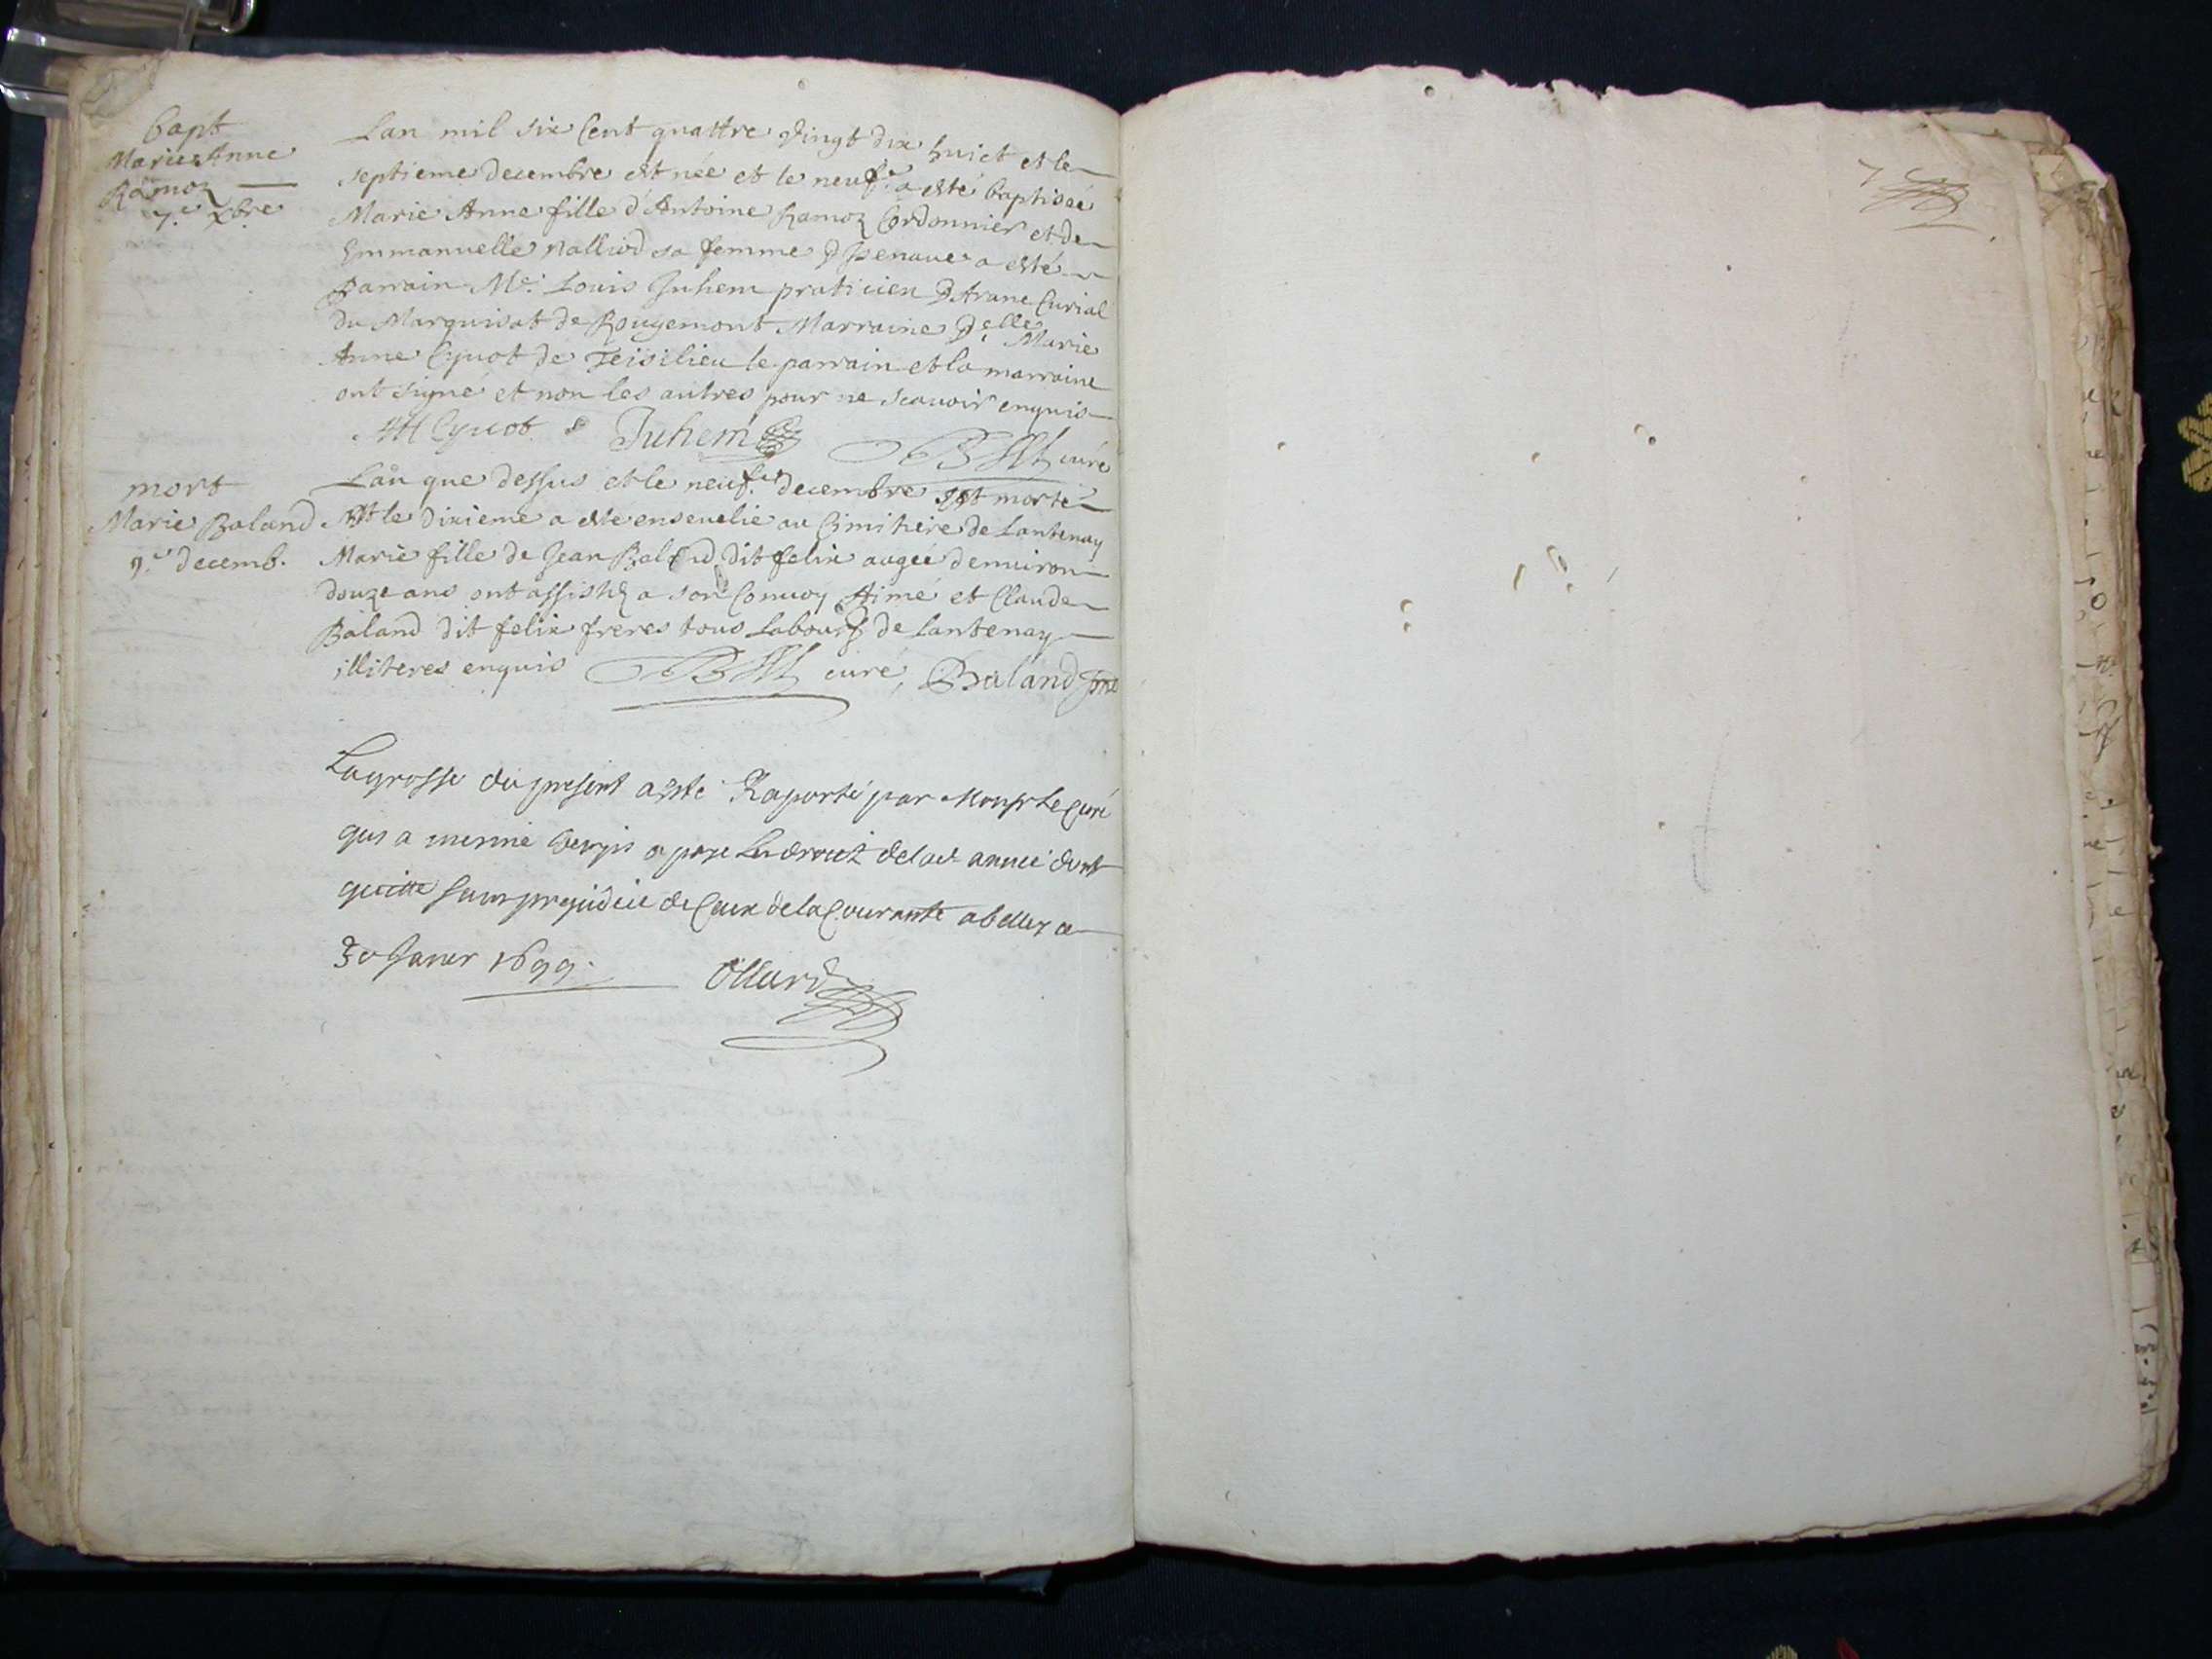 bapt
Marie Anne
Ramoz
7.e xbre
Lan mil six Cent quattre vingt dix huict et le
septieme decembre est née et le neuf.e a esté baptisée
Marie Anne fille d'Antoine Ramoz Cordonnier et de
Emmanuelle Nalliod sa femme d Izenaue a esté
Parrain Me. Louis Juhem praticien d Arane Curial
du Marquisat de Rougemont Marraine D.elle Marie
Anne Cyuot de le parrain et la marraine
ont signé et non les autres pour ne scauoir enquis
Cyuot Juhem curé
mort
Marie Baland
9.e decemb.
Lan que dessus et le neuf.e decembre est morte
et le dixieme a este enseuelie au Cimitiere de Lantenay
Marie fille de Jean Baland dit felix augée denuiron
douze ans ont assistéz a son Conuoy Aimé et Claude
Baland dit felix freres tous Labour.s de Lantenay
illiteres enquis curé, Baland
La grosse du present a esté Raporté par Monsr Le Curé
qui a mesme paye Les droict de lad. annee dont
quitte sans prejudice de Ceux de la Courante a belley ce
30 Januer 1699. Ollard
7